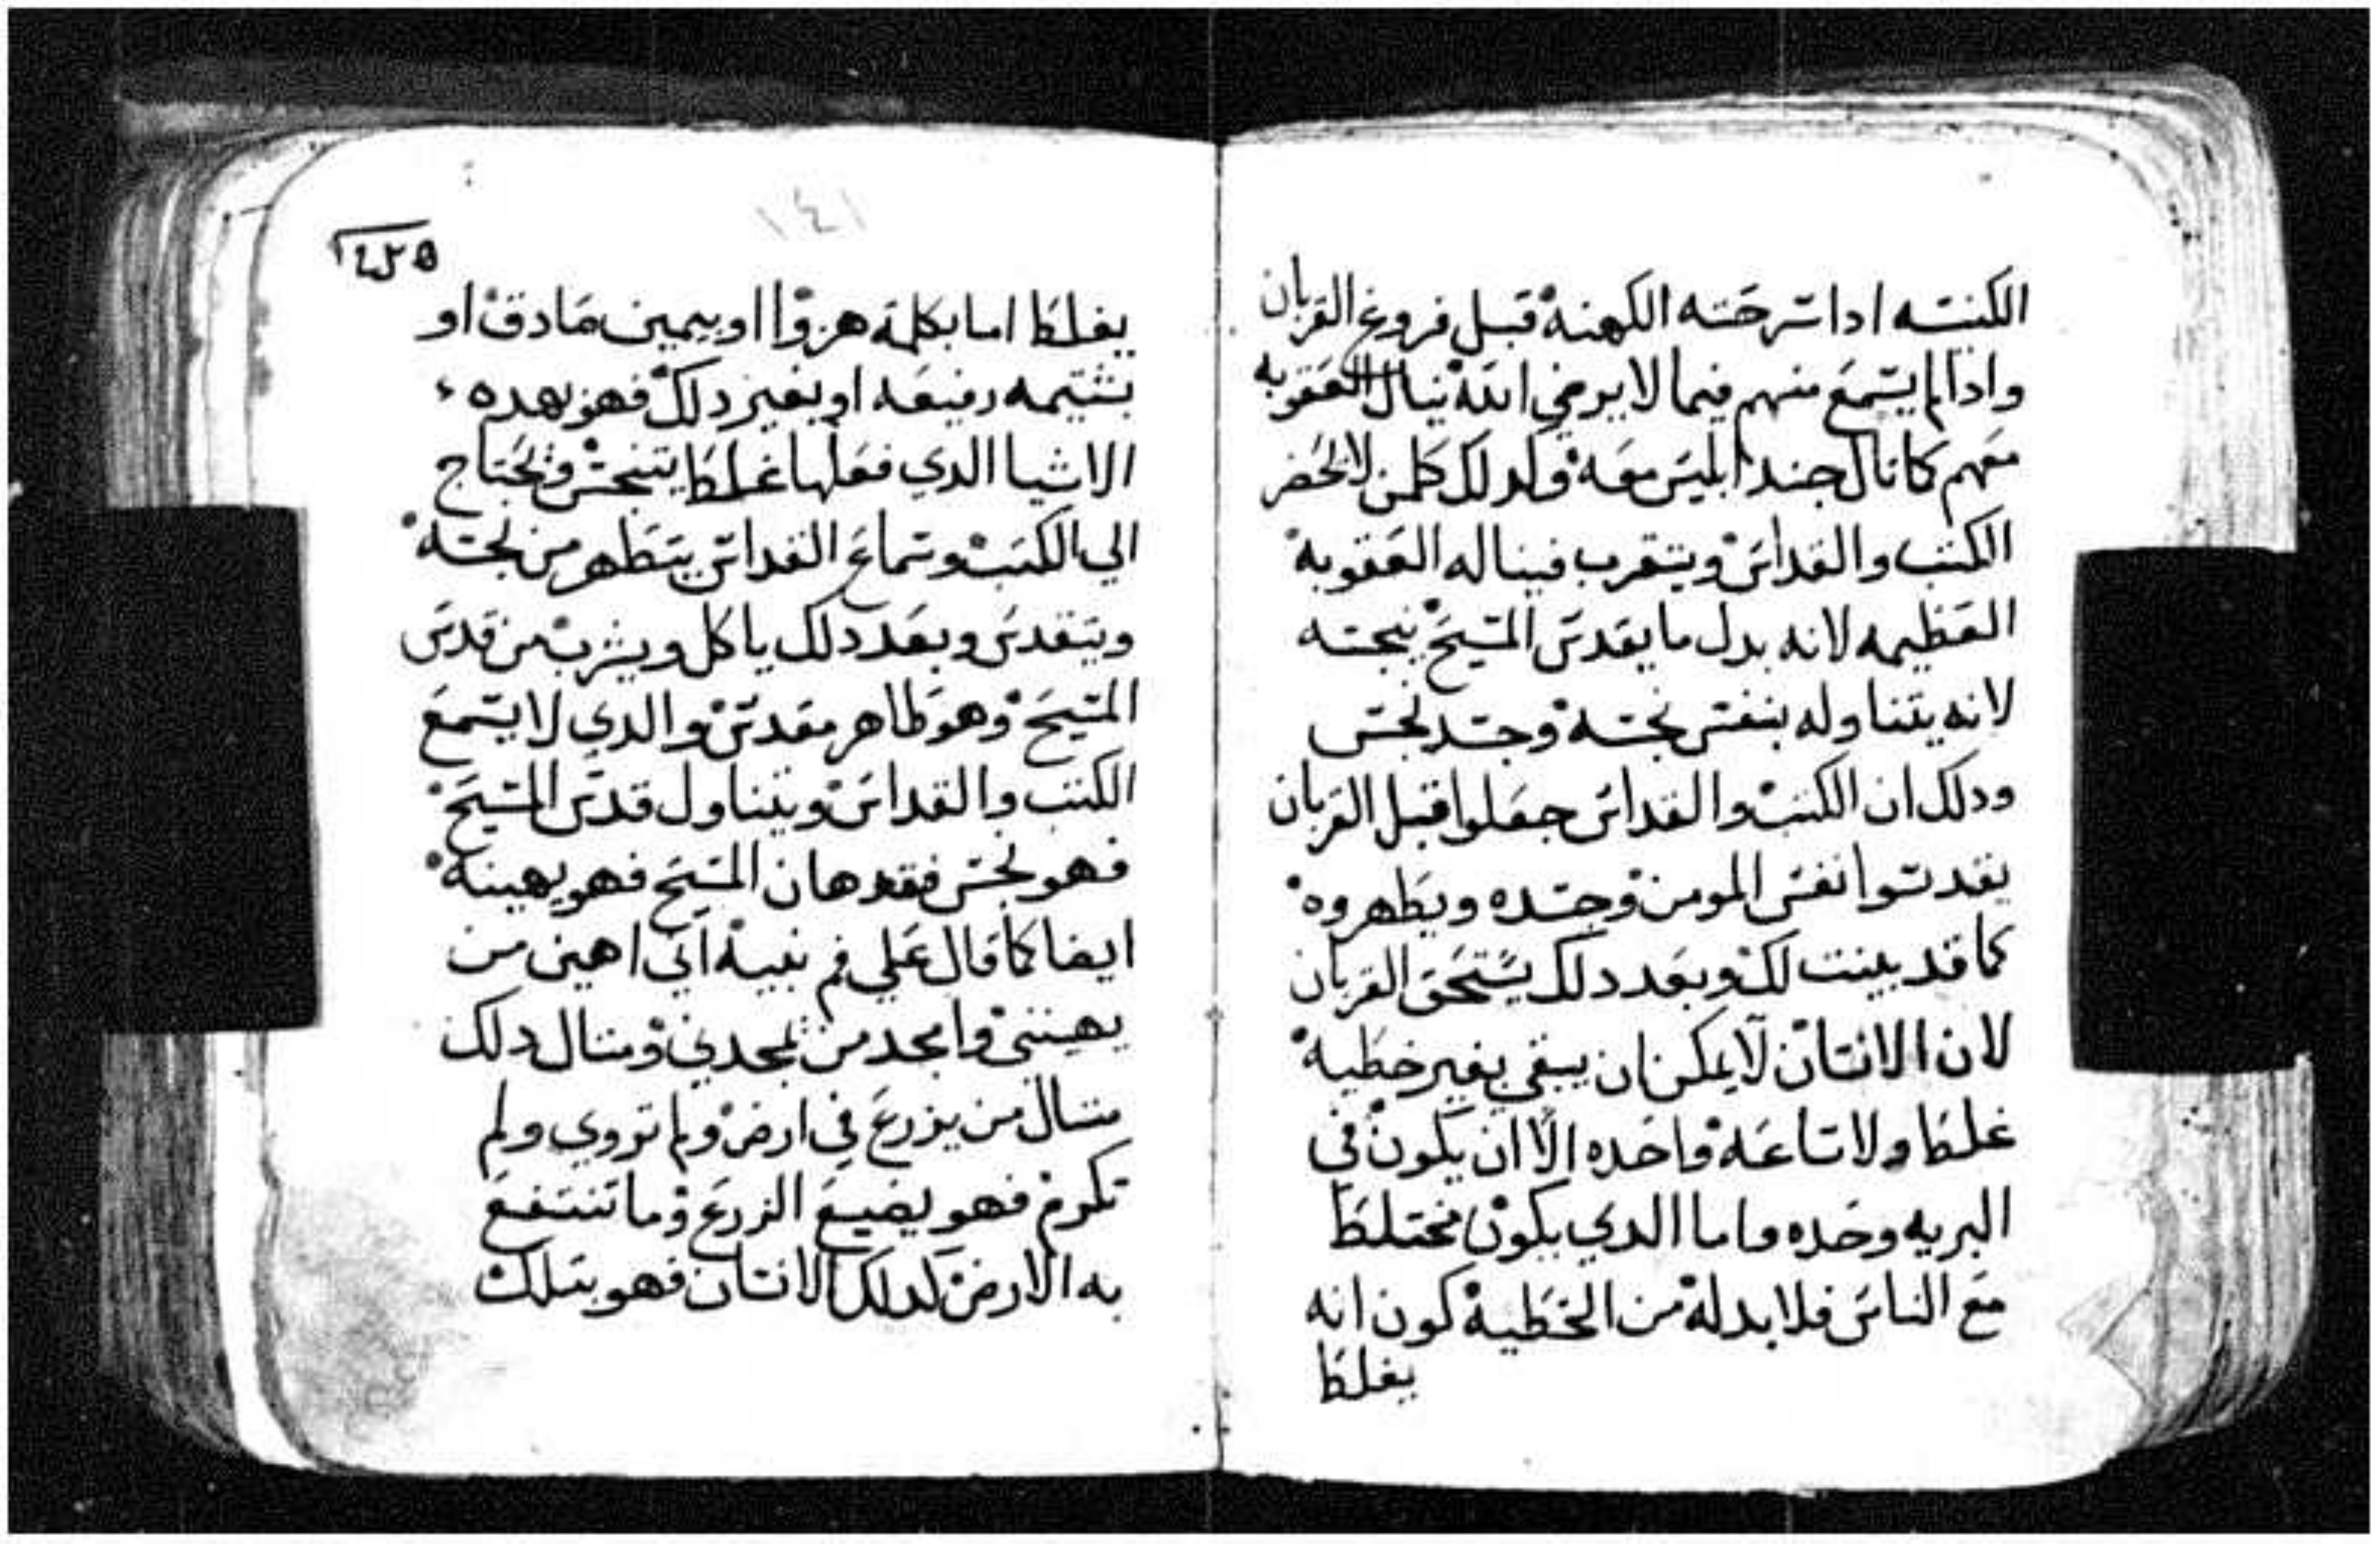 الكنسه ادا سرحته الكهنة قبل فروغ القربان
وادا لم يسمع منهم فيما لا يرضي الله ينال العقوبه
معهم كما نال جند ابليس معه ولدلك كلمن لا يحضر
الكتب والقداس ويتقرب فيناله العقوبه
العظيمه لانه بدل ما يقدس المسيح ينجسه
لانه يتناوله بنفس نجسه وجسد نجس
ودلك ان الكتب والقداس جعلوا قبل القربان
يقدسوا نفس المومن وجسده ويطهروه
كما قد بينت لك وبعد دلك يستحق القربان
لان الانسان لا يمكن ان يبقي بغير خطية
غلط ولا ساعة واحده الا ان يكون في
البريه وحده واما الدي يكون مختلط
مع الناس فلا بد له من الخطية كون انه
يغلط
١٤١
يغلط اما بكلمة هزوا او بيمين صادق او
بشتيمه رفيقه او بغير دلك فهو بهده
الاشيا الدي فعلها غلط يتنجس ويحتاج
الي الكتب وسماع القداس يتطهر من نجسه
ويتقدس وبعد دلك ياكل ويشرب من قدس
المسيح وهو طاهر مقدس والدي لا يسمع
الكتب والقداس ويتناول قدس المسيح
فهو نجس فقد هان المسيح فهو يهينه
ايضا كما قال علي فم نبيه اني اهين من
يهينني وامجد من يمجدني ومتال دلك
متال من يزرع في ارض ولم تروي ولم
تكرم فهو يضيع الزرع وما تنتفع
به الارض كدلك الانسان فهو بتلك